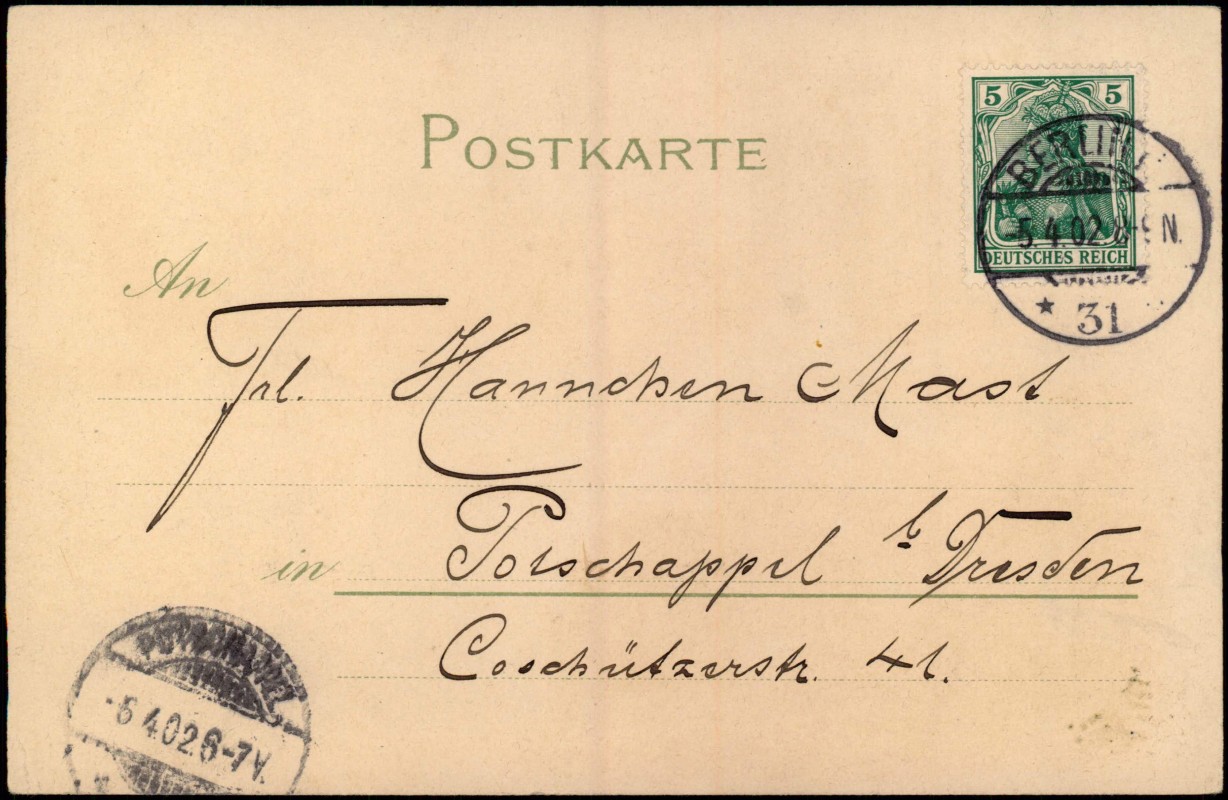 POSTKARTE
5 5
DEUTSCHES REICH
BERLIN
-5 4. 02 8-9 N.
* 31
An
Frl. Hannchen Mast
in Potschappel b Dresden
Coschützerstr. 41.
POTSCHAPPEL
-6 4.02 6-7 V.